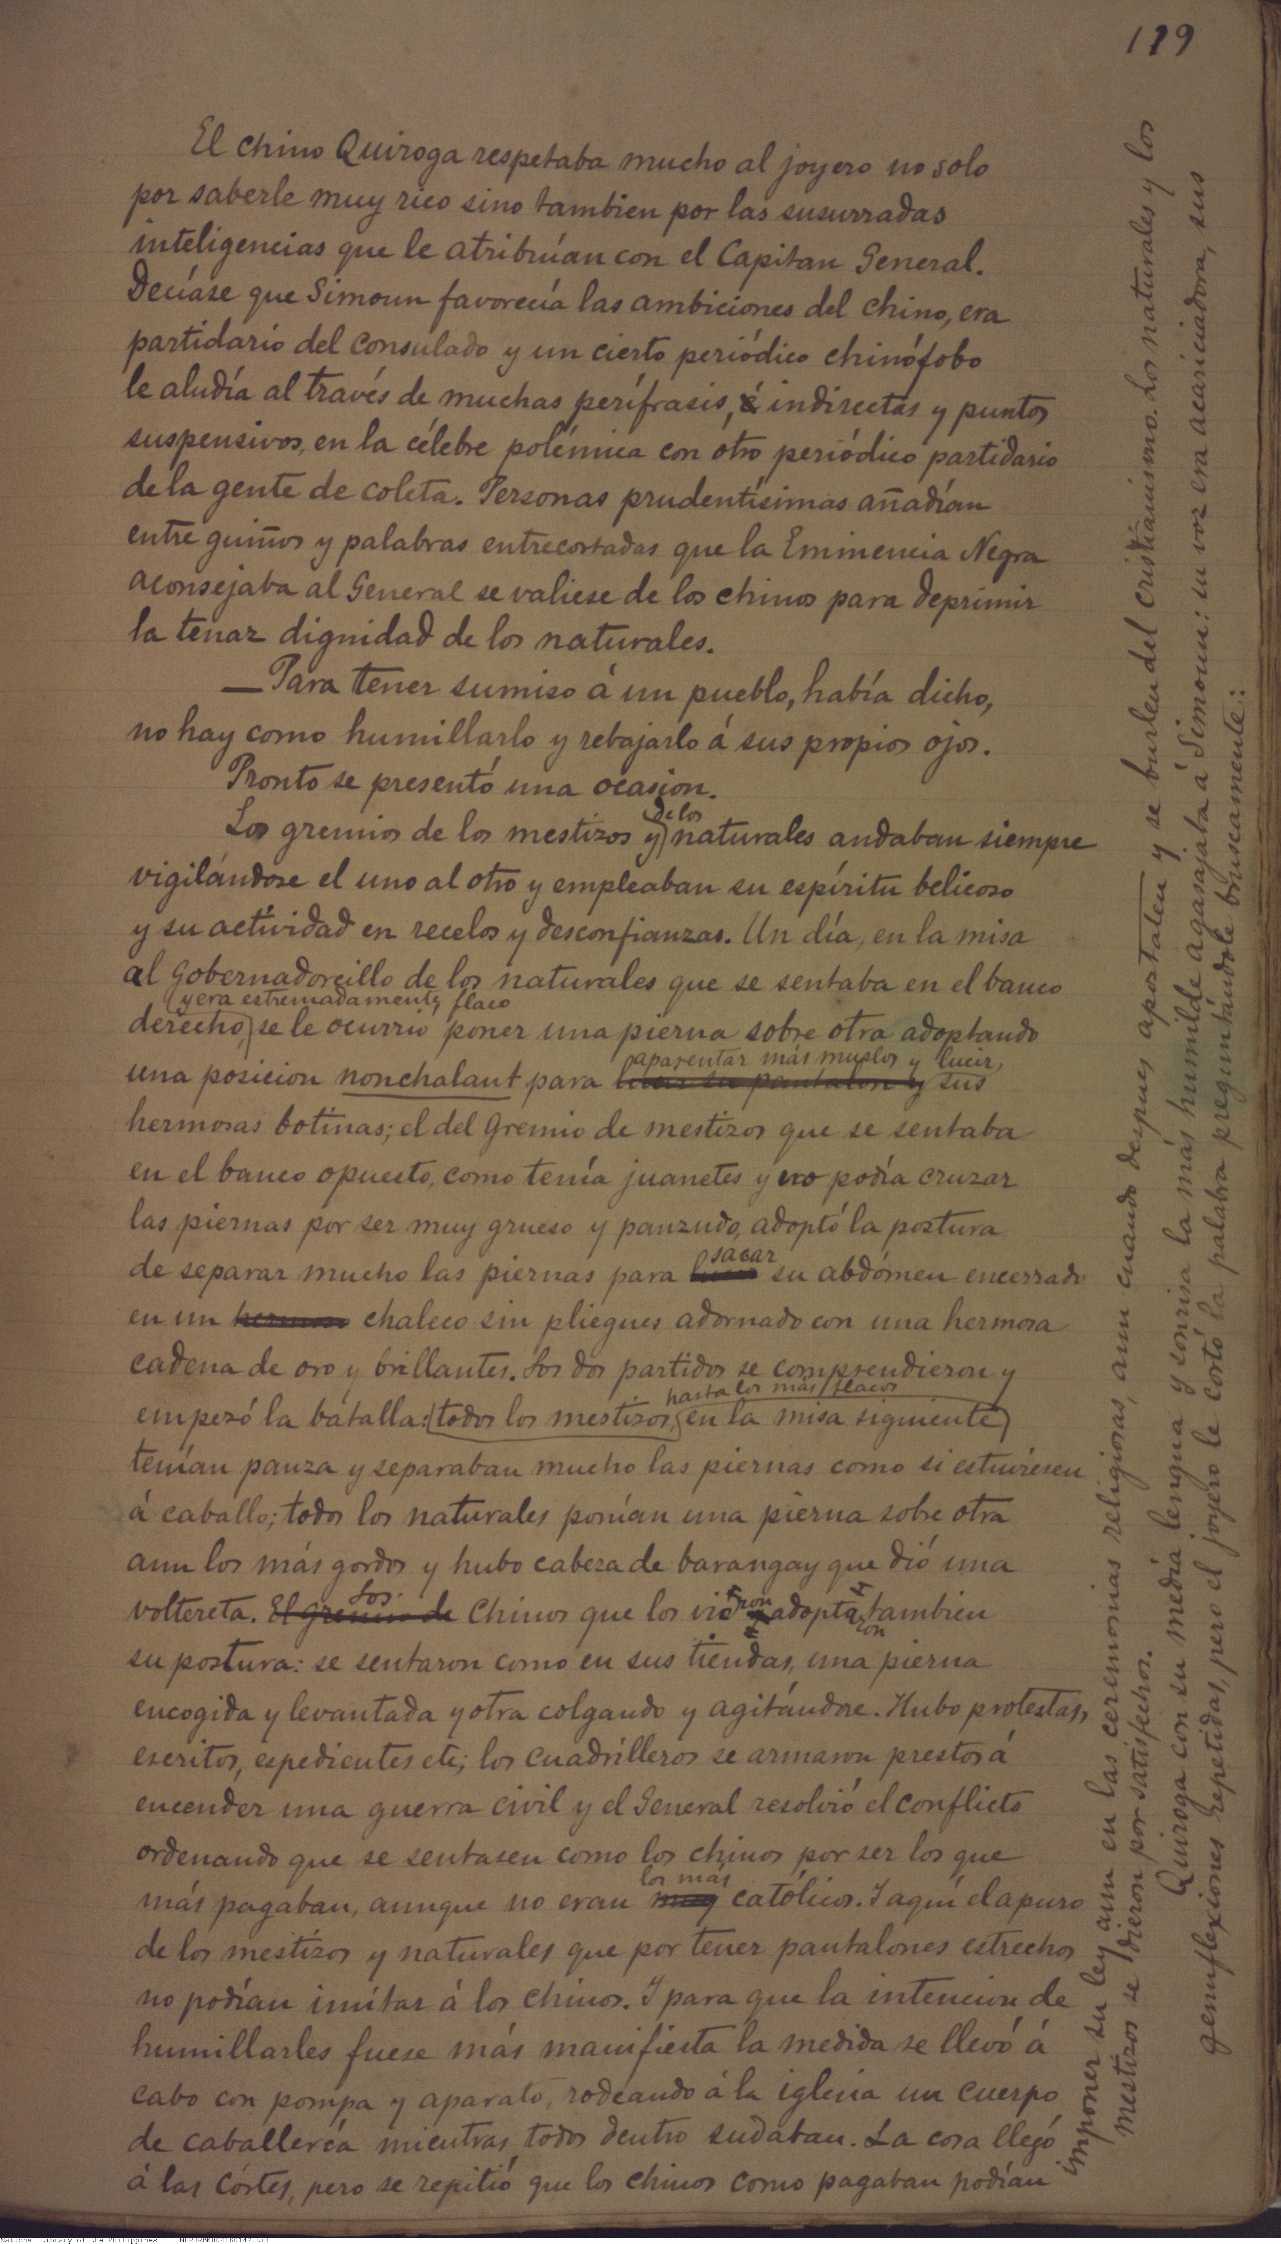 119
El chino Quiroga respetaba mucho al joyero no solo
por saberle muy rico sino tambien por las susurradas
inteligencias que le atribuían con el Capitan General.
Decíase que Simoun favorecía las ambiciones del chino, era
partidario del consulado y un cierto periódico chinófobo
le aludía al través de muchas perífrasis, indirectas y puntos
suspensivos, en la célebre polémica con otro periódico partidario
de la gente de coleta. Personas prudentísimas añadían
entre guiños y palabras entrecortadas que la Eminencia Negra
aconsejaba al General se valiese de los chinos para deprimir
la tenaz dignidad de los naturales.
—Para tener sumiso á un pueblo, había dicho,
no hay como humillarlo y rebajarlo á sus propios ojos.
Pronto se presentó una ocasion.
Los gremios de los mestizos y de los naturales andaban siempre
vigilándose el uno al otro y empleaban su espíritu belicoso
y su actividad en recelos y desconfianzas. Un día, en la misa
al Gobernadorcillo de los naturales que se sentaba en el banco
derecho, y era estremadamente flaco se le ocurrió poner una pierna sobre otra adoptando
una posicion nonchalant para lucir su pantalon y aparentar más muslos y lucir sus
hermosas botinas; el del Gremio de mestizos que se sentaba
en el banco opuesto, como tenía juanetes y no podía cruzar
las piernas por ser muy grueso y panzudo, adoptó la postura
de separar mucho las piernas para lucir sacar su abdómen encerrado
en un hermoso chaleco sin pliegues adornado con una hermosa
cadena de oro y brillantes. Los dos partidos se comprendieron y
empezó la batalla: todos los mestizos, hasta los más flacos en la misa siguiente
tenían panza y separaban mucho las piernas como si estuviesen
á caballo; todos los naturales ponían una pierna sobre otra
aun los más gordos y hubo cabeza de barangay que dió una
voltereta. El gremio de Los Chinos que los vieron adoptaron tambien
su postura: se sentaron como en sus tiendas, una pierna
encogida y levantada y otra colgando y agitándose. Hubo protestas,
escritos, espedientes etc; los cuadrilleros se armaron prestos á
encender una guerra civil y el General resolvió el conflicto
ordenando que se sentasen como los chinos por ser los que
más pagaban, aunque no eran muy los más católicos. Y aquí el apuro
de los mestizos y naturales que por tener pantalones estrechos
no podían imitar á los chinos. Y para que la intencion de
humillarles fuese más manifiesta la medida se llevó á
cabo con pompa y aparato, rodeando á la iglesia un cuerpo
de caballería mientras todos dentro sudaban. La cosa llegó
á las Córtes, pero se repitió que los chinos como pagaban podían
imponer su ley aun en las ceremonias religiosas, aun cuando despues apostaten y se burlen del cristianismo. Los naturales y los
mestizos se dieron por satisfechos.
Quiroga con su media lengua y sonrisa la más humilde agasajaba á Simoun: su voz era acariciadora, sus
genuflexiones repetidas, pero el joyero le cortó la palabra preguntándole bruscamente: